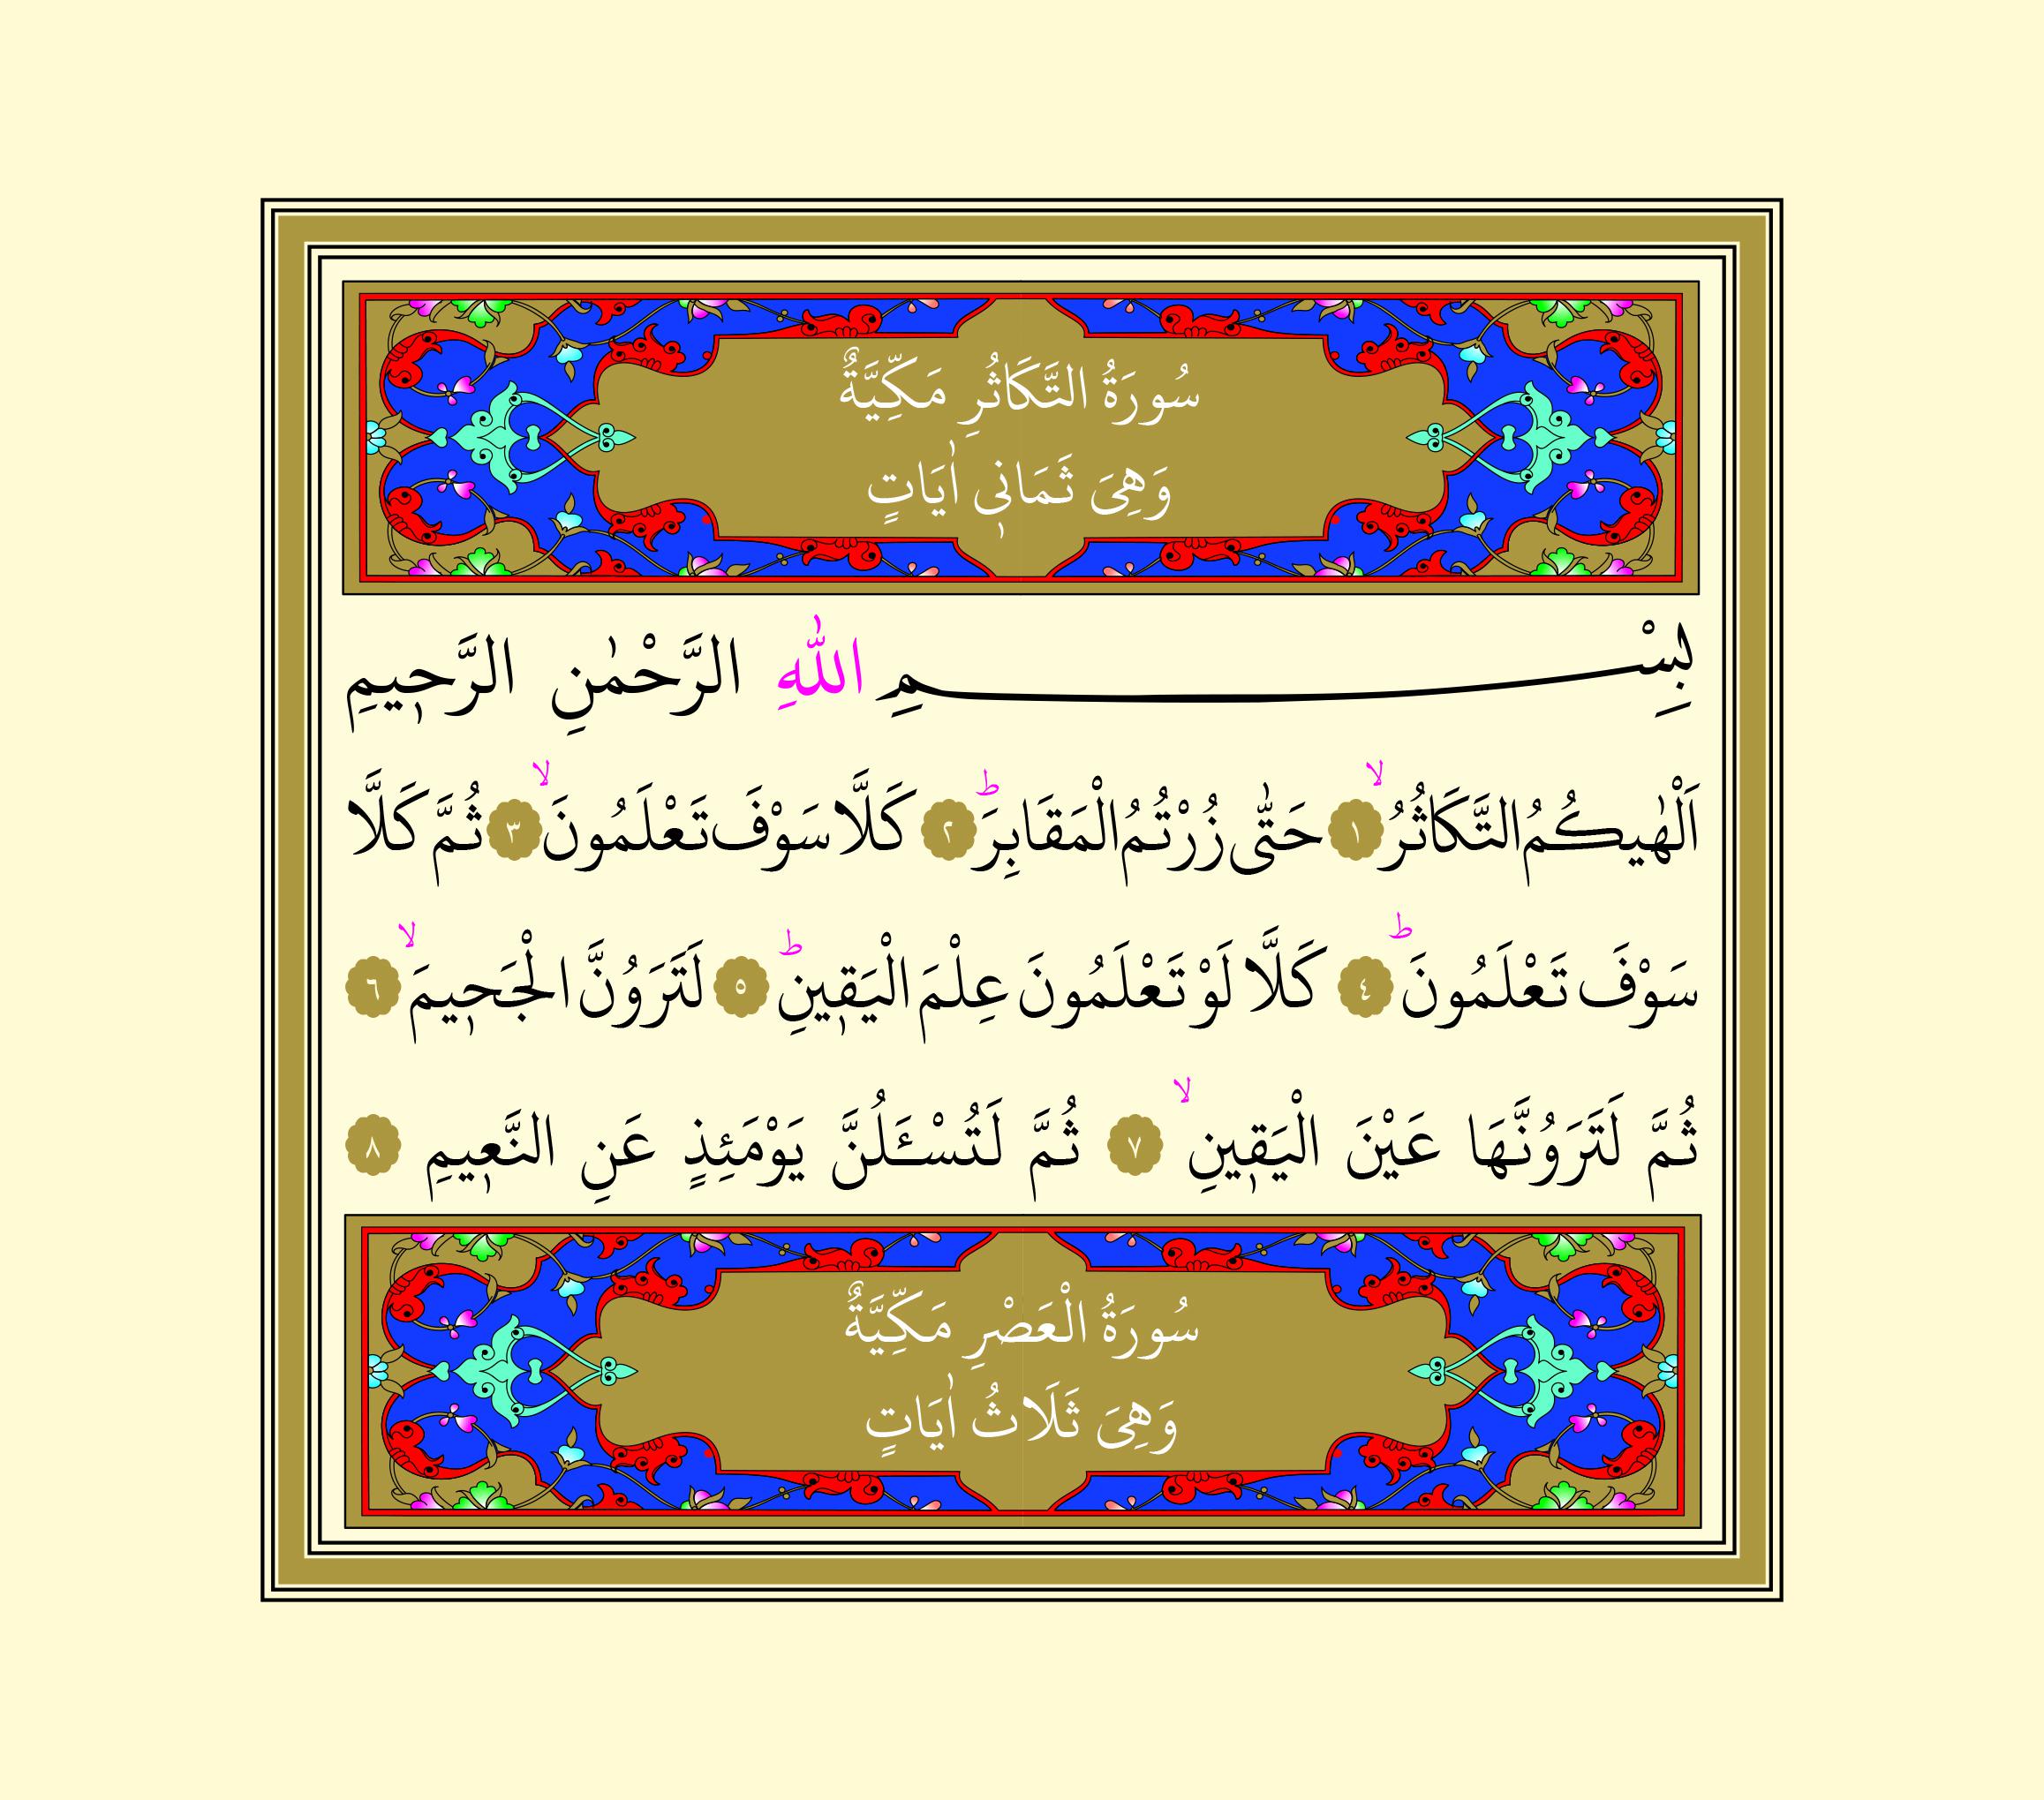 سُورَةُ التَّكَاثُرِ مَكِّيَّةٌ
وَهِىَ ثَمَانٖى اٰيَاتٍ
بِسْمِ اللّٰهِ الرَّحْمٰنِ الرَّحٖيمِ
اَلْهٰيكُمُ التَّكَاثُرُۙ ﴿١﴾ حَتّٰى زُرْتُمُ الْمَقَابِرَۜ ﴿٢﴾ كَلَّا سَوْفَ تَعْلَمُونَۙ ﴿٣﴾ ثُمَّ كَلَّا
سَوْفَ تَعْلَمُونَۜ ﴿٤﴾ كَلَّا لَوْ تَعْلَمُونَ عِلْمَ الْيَقٖينِۜ ﴿٥﴾ لَتَرَوُنَّ الْجَحٖيمَۙ ﴿٦﴾
ثُمَّ لَتَرَوُنَّهَا عَيْنَ الْيَقٖينِۙ ﴿٧﴾ ثُمَّ لَتُسْـَٔلُنَّ يَوْمَئِذٍ عَنِ النَّعٖيمِ ﴿٨﴾
سُورَةُ الْعَصْرِ مَكِّيَّةٌ
وَهِىَ ثَلَاثُ اٰيَاتٍ